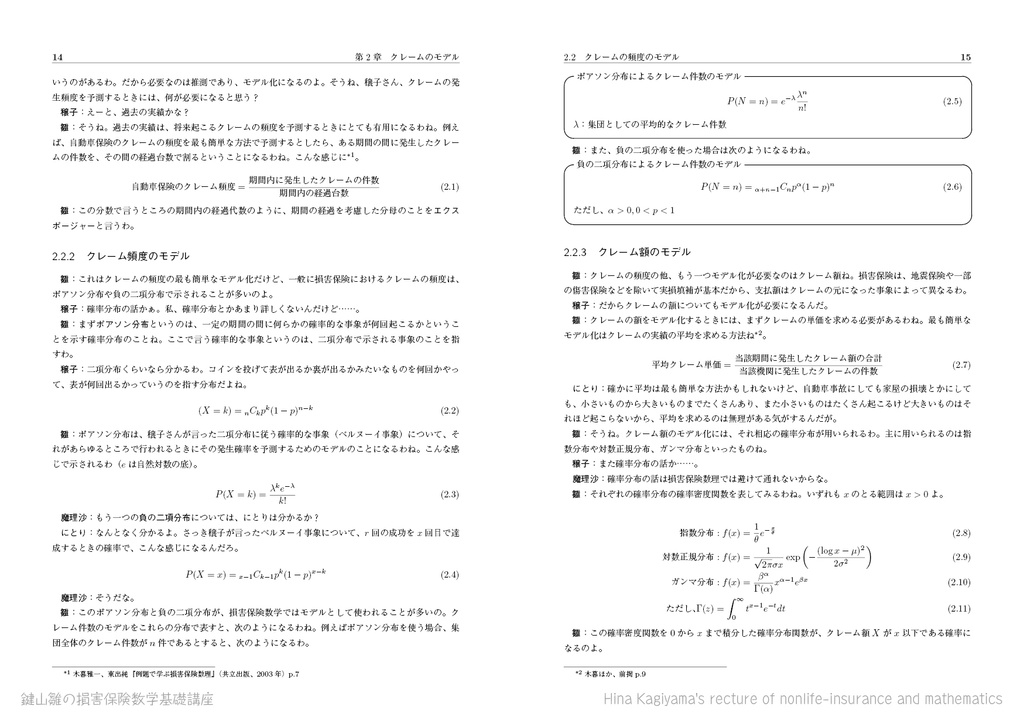 14
第 2 章　クレームのモデル
いうのがあるわ。だから必要なのは推測であり、モデル化になるのよ。そうね、穣子さん、クレームの発
生頻度を予測するときには、何が必要になると思う？
穣子：えーと、過去の実績かな？
雛：そうね。過去の実績は、将来起こるクレームの頻度を予測するときにとても有用になるわね。例え
ば、自動車保険のクレームの頻度を最も簡単な方法で予測するとしたら、ある期間の間に発生したクレー
ムの件数を、その間の経過台数で割るということになるわね。こんな感じに*1。
自動車保険のクレーム頻度 = 期間内に発生したクレームの件数 / 期間内の経過台数 (2.1)
雛：この分数で言うところの期間内の経過代数のように、期間の経過を考慮した分母のことをエクス
ポージャーと言うわ。
2.2.2　クレーム頻度のモデル
雛：これはクレームの頻度の最も簡単なモデル化だけど、一般に損害保険におけるクレームの頻度は、
ポアソン分布や負の二項分布で示されることが多いのよ。
穣子：確率分布の話かぁ。私、確率分布とかあまり詳しくないんだけど……。
雛：まずポアソン分布というのは、一定の期間の間に何らかの確率的な事象が何回起こるかというこ
とを示す確率分布のことね。ここで言う確率的な事象というのは、二項分布で示される事象のことを指
すわ。
穣子：二項分布くらいなら分かるわ。コインを投げて表が出るか裏が出るかみたいなものを何回かやっ
て、表が何回出るかっていうのを指す分布だよね。
(X = k) = nCkp^k(1 − p)^{n−k} (2.2)
雛：ポアソン分布は、穣子さんが言った二項分布に従う確率的な事象（ベルヌーイ事象）について、そ
れがあらゆるところで行われるときにその発生確率を予測するためのモデルのことになるわね。こんな感
じで示されるわ（e は自然対数の底）。
P(X = k) = λ^k e^{−λ} / k! (2.3)
魔理沙：もう一つの負の二項分布については、にとりは分かるか？
にとり：なんとなく分かるよ。さっき穣子が言ったベルヌーイ事象について、r 回の成功を x 回目で達
成するときの確率で、こんな感じになるんだろ。
P(X = x) = x−1Ck−1p^k(1 − p)^{x−k} (2.4)
魔理沙：そうだな。
雛：このポアソン分布と負の二項分布が、損害保険数学ではモデルとして使われることが多いの。ク
レーム件数のモデルをこれらの分布で表すと、次のようになるわね。例えばポアソン分布を使う場合、集
団全体のクレーム件数が n 件であるとすると、次のようになるわ。
*1 木暮雅一、東出純『例題で学ぶ損害保険数理』（共立出版、2003 年）p.7
2.2　クレームの頻度のモデル
15
ポアソン分布によるクレーム件数のモデル
P(N = n) = e^{−λ} λ^n / n! (2.5)
λ：集団としての平均的なクレーム件数
雛：また、負の二項分布を使った場合は次のようになるわね。
負の二項分布によるクレーム件数のモデル
P(N = n) = α+n−1Cnp^α(1 − p)^n (2.6)
ただし、α > 0, 0 < p < 1
2.2.3　クレーム額のモデル
雛：クレームの頻度の他、もう一つモデル化が必要なのはクレーム額ね。損害保険は、地震保険や一部
の傷害保険などを除いて実損填補が基本だから、支払額はクレームの元になった事象によって異なるわ。
穣子：だからクレームの額についてもモデル化が必要になるんだ。
雛：クレームの額をモデル化するときには、まずクレームの単価を求める必要があるわね。最も簡単な
モデル化はクレームの実績の平均を求める方法ね*2。
平均クレーム単価 = 当該期間に発生したクレーム額の合計 / 当該機関に発生したクレームの件数 (2.7)
にとり：確かに平均は最も簡単な方法かもしれないけど、自動車事故にしても家屋の損壊とかにして
も、小さいものから大きいものまでたくさんあり、また小さいものはたくさん起こるけど大きいものはそ
れほど起こらないから、平均を求めるのは無理がある気がするんだが。
雛：そうね。クレーム額のモデル化には、それ相応の確率分布が用いられるわ。主に用いられるのは指
数分布や対数正規分布、ガンマ分布といったものね。
穣子：また確率分布の話か……。
魔理沙：確率分布の話は損害保険数理では避けて通れないからな。
雛：それぞれの確率分布の確率密度関数を表してみるわね。いずれも x のとる範囲は x > 0 よ。
指数分布 : f(x) = 1/θ e^{−x/θ} (2.8)
対数正規分布 : f(x) = 1/(√2πσx) exp(−(log x − μ)^2 / 2σ^2) (2.9)
ガンマ分布 : f(x) = β^α/Γ(α) x^{α−1}e^{βx} (2.10)
ただし、Γ(z) = ∫_0^∞ t^{x−1}e^{−t}dt (2.11)
雛：この確率密度関数を 0 から x まで積分した確率分布関数が、クレーム額 X が x 以下である確率に
なるのよ。
*2 木暮ほか、前掲 p.9
鍵山雛の損害保険数学基礎講座
Hina Kagiyama's recture of nonlife-insurance and mathematics